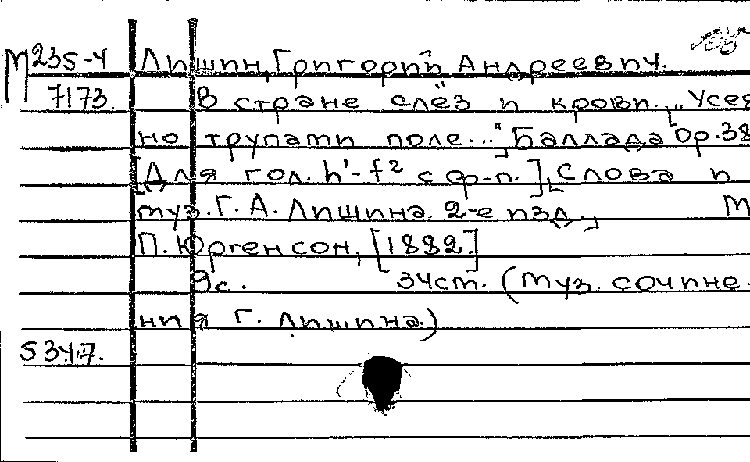 М 235-4 Лишин, Григорий Андреевич.
7173. В стране слёз и крови... "Усея
но трупами поле...", Баллада Op.38
[Для гол. h¹-f² с ф-п.], Слова и
муз. Г. А. Лишина. 2-е изд., М
П. Юргенсон, [1882]
9с. 34см. (Муз. сочине
ния Г. Лишина.)
5347.